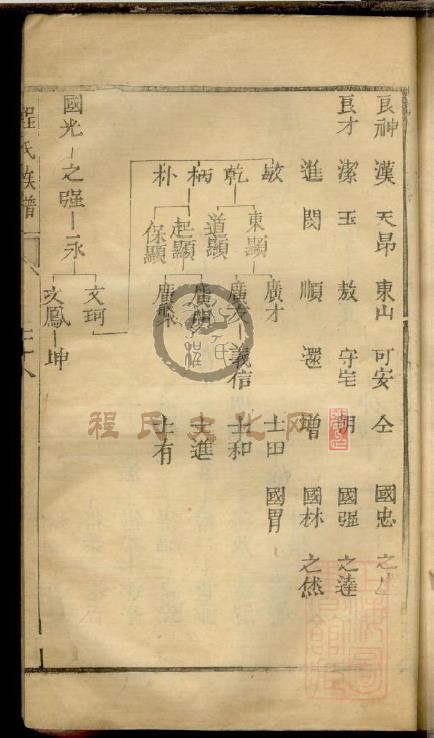 良神 漢 天昂 東山 可安 仝 國忠
良才 潔 玉 敖 守宅 朝 國强 之達
進 閔 順 還 增 國林 之然
敏 廣才 士田 國胃
乾 東顯 道顯 義信 士和
柄 起顯 士進
朴 保顯 士有
國光 之强 永 文珂
文鳳 坤
程氏族譜
程氏文化网